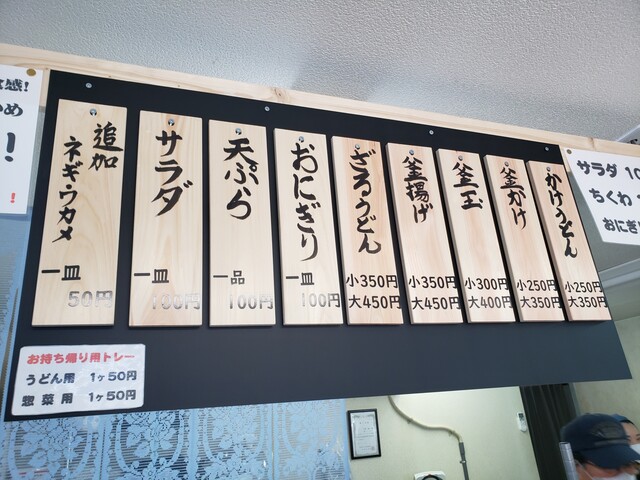 かけうどん
小250円
大350円
釜かけ
小250円
大350円
釜玉
小300円
大400円
釜揚げ
小350円
大450円
ざるうどん
小350円
大450円
おにぎり
一皿
100円
天ぷら
一品
100円
サラダ
一皿
100円
追加
ネギ・ワカメ
一皿
50円
お持ち帰り用トレー
うどん用 1ヶ50円
惣菜用 1ヶ50円
サラダ 10
ちくわ
おにぎ
感!
め
!
!